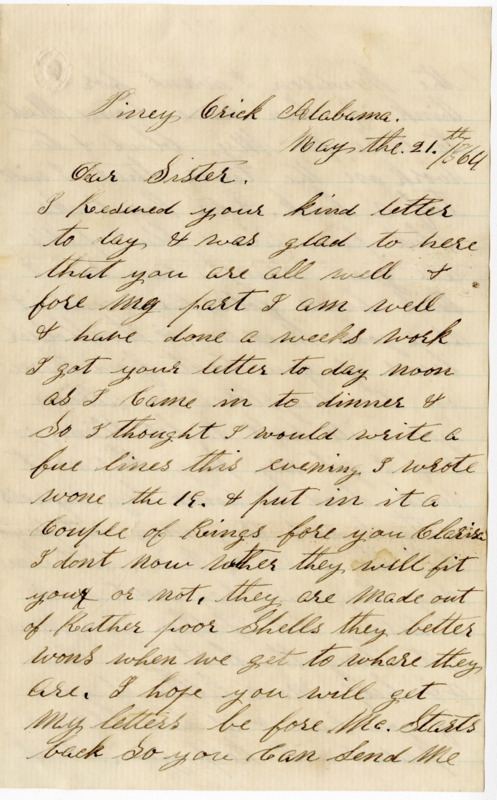 Piney Crick Alabama.
May the. 21.th 1864
Dear Sister.
I Received your kind letter
to day & was glad to here
that you are all well &
fore my part I am well
& have done a weeks work
I got your letter to day noon
as I Came in to dinner &
So I thought I would write a
fue lines this evening I wrote
wone the 19. & put in it a
Couple of Rings fore you Clarisa
I dont now wther they will fit
your or not, they are made out
of Rather poor Shells they better
wons when we get to whare they
are. I hope you will get
My letters be fore Mc. Starts
back So you Can Send Me